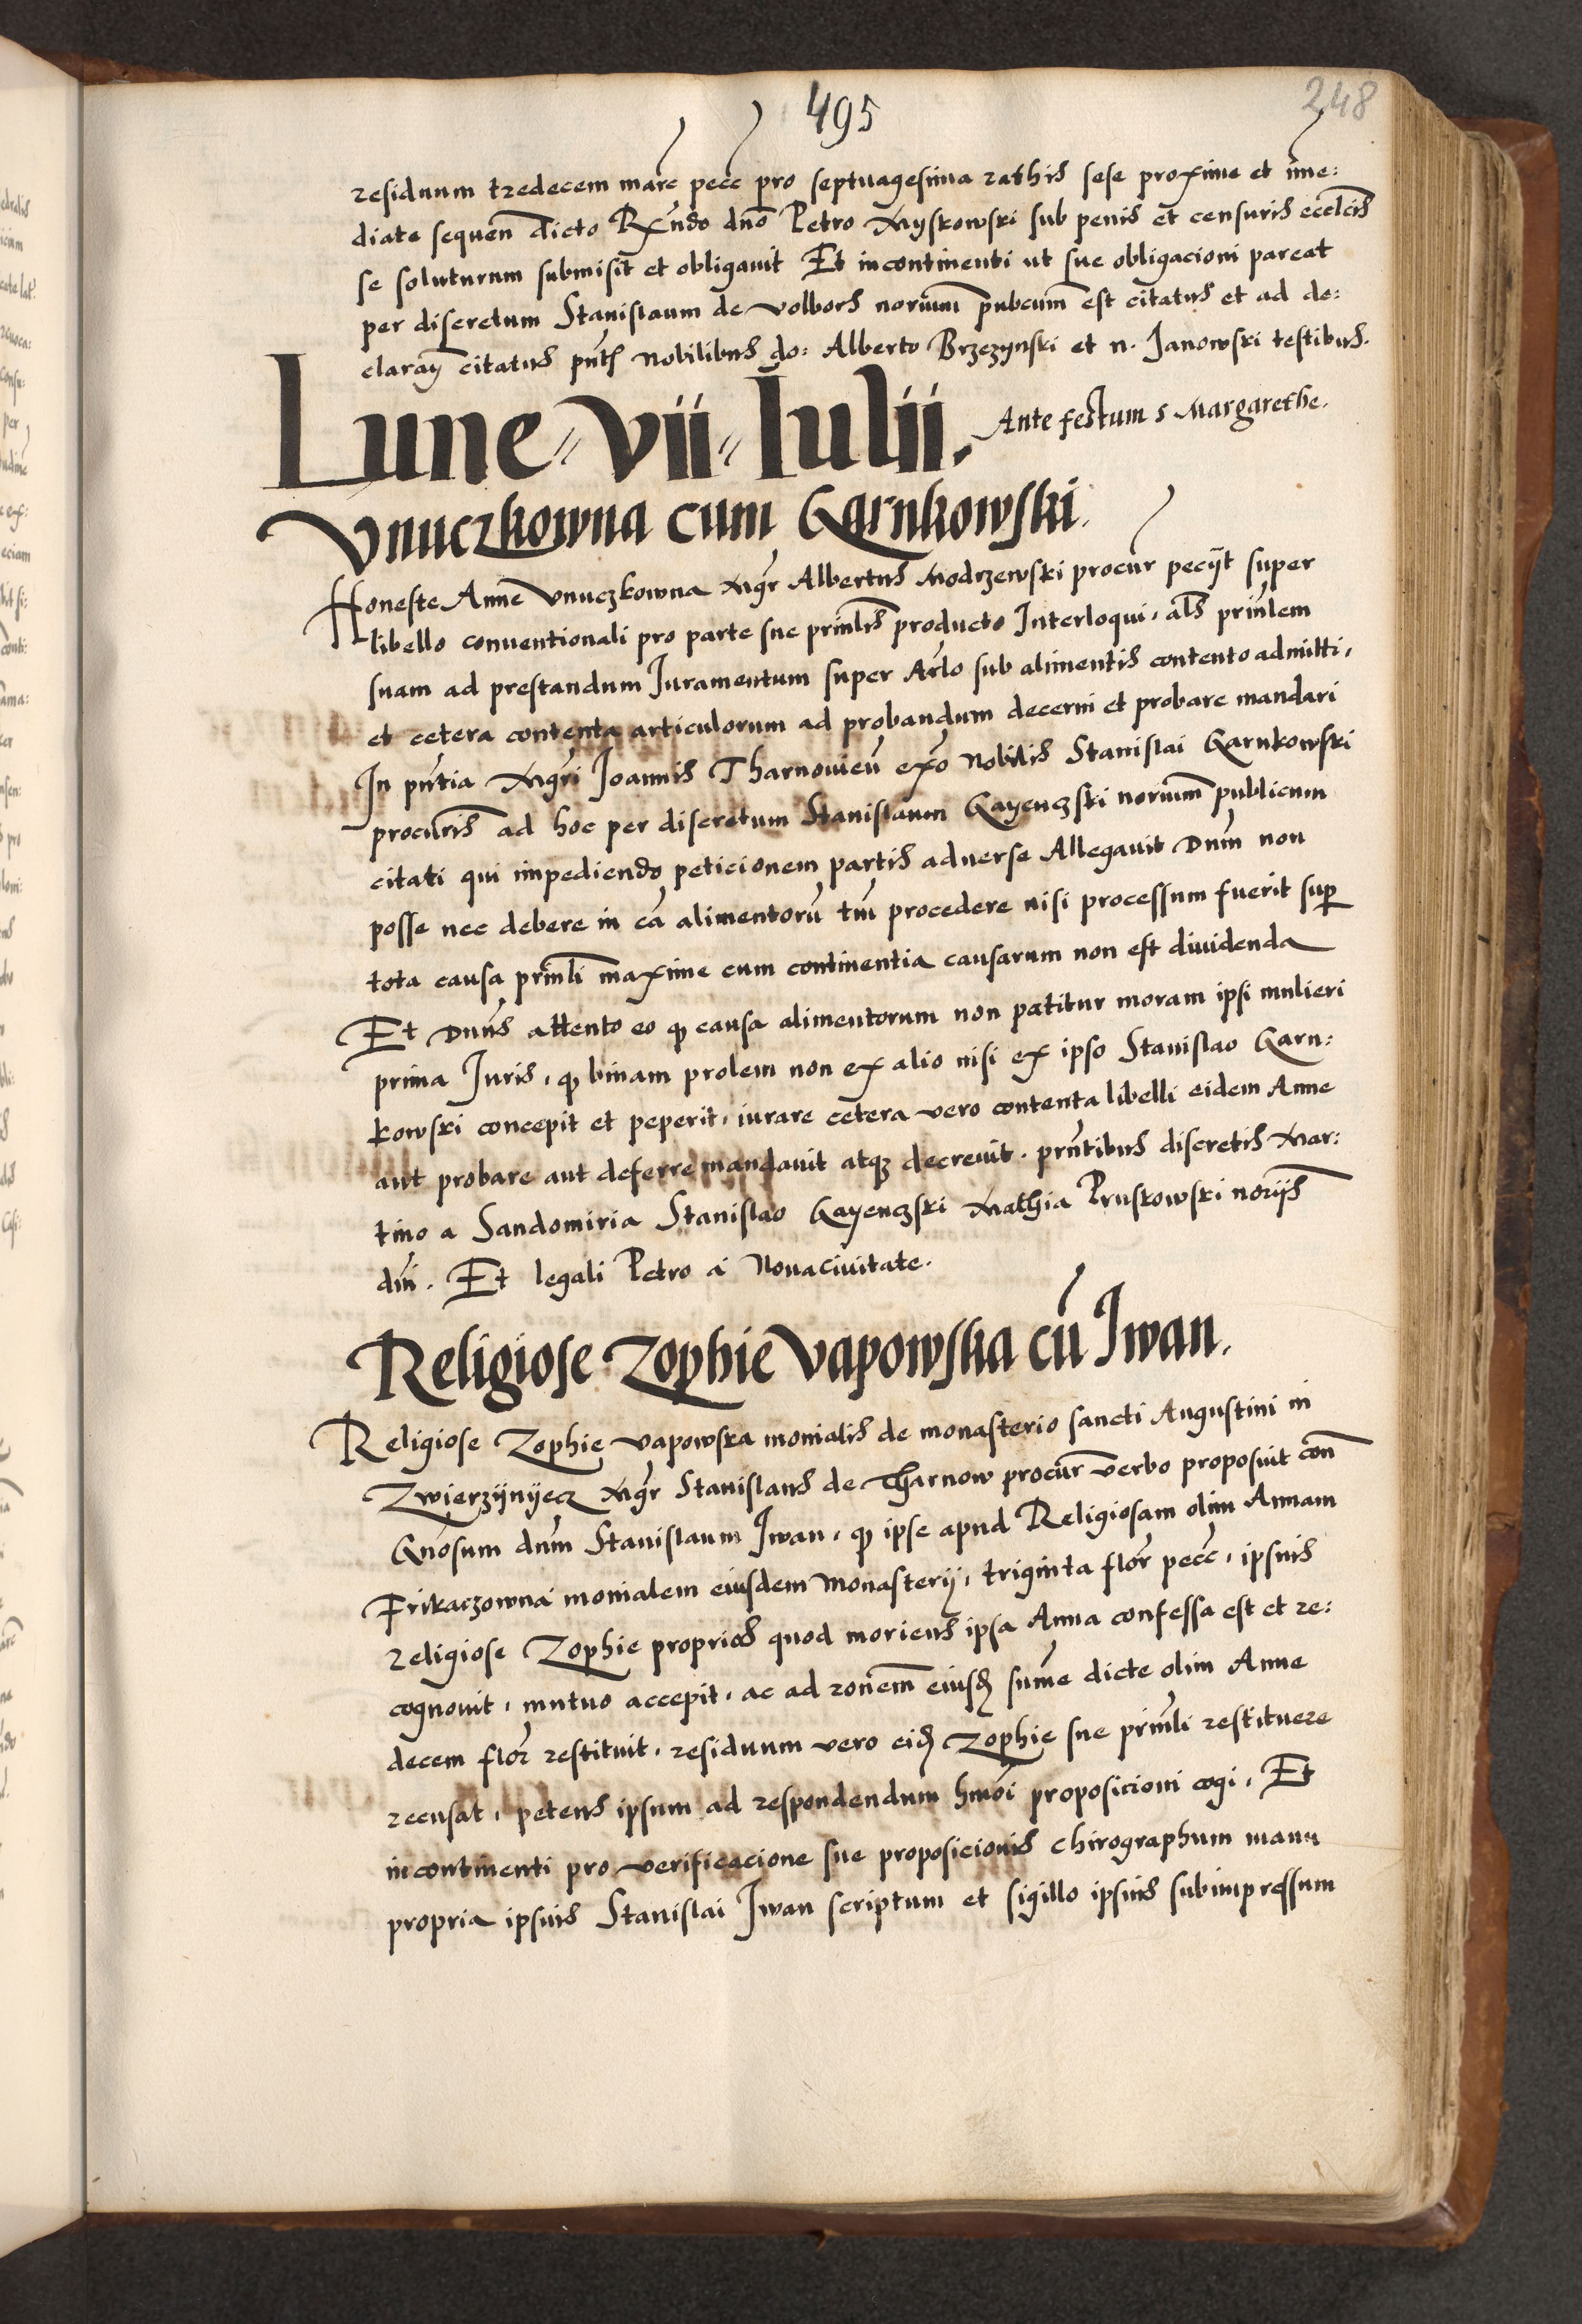 495
248
residuum tredecem marc̄ pecc̄ pro septuagesima rathis sese proxime et im̄e:
diate sequen̄ dicto Rx̄ndo dn̄o Petro Myskowski sub penis et censuris eccl̄cis
se soluturum submisit et obligauit Et incontinenti ut sue obligacioni pareat
per discretum Stanislaum de Volbors norium̄ pubcum̄ est citatus et ad de:
claraȳ citatus pn̄t nobilibus do: Alberto Brzezynski et n. Janowski testibus.
Lune vii Iulii. Ante festum s Margarethe.
Vnuczkowna cum Garnkowski.
Honeste Anne Vnuczkowna Mgr̄ Albertus Modrzewski procur̄ pecijt super
libello conventionali pro parte sue prin̄lis producto Interloqui, al̄s prin̄lem
suam ad prestandum Juramentum super Ar̄lo sub alimentis contento admitti,
et cetera contenta articulorum ad probandum decerni et probare mandari
In pn̄tia Mgr̄i Joannis Tharnouien̄ ex̄o Nobilis Stanislai Garnkowski
procur̄is ad hoc per discretum Stanislaum Gayenczski norium̄ publicum
citati qui impediendo peticionem partis aduerse Allegauit Dn̄m non
posse nec debere in cā alimentorū tm̄ procedere nisi processum fuerit suꝑ
tota causa prin̄li maxime cum continentia causarum non est diuidenda
Et Dn̄us attento eo ꝙ causa alimentorum non patitur moram ipsi mulieri
prima Juris, ꝙ binam prolem non ex alio nisi ex ipso Stanislao Garn:
kowski concepit et peperit, iurare cetera vero contenta libelli eidem Anne
aut probare aut deferre mandauit atqꝫ decreuit. pn̄tibus discretis Mar:
tino a Sandomiria Stanislao Gayenczski Mathia Pruskowski norijs
dn̄i. Et legali Petro a Nouaciuitate.
Religiose Zophie Vapowska cū Iwan.
Religiose Zophie Vapowska monialis de monasterio sancti Augustini in
Zwierzÿnÿecz Mgr̄ Stanislaus de Tharnow procur̄ verbo proposuit con̄
Gn̄osum dn̄m Stanislaum Jwan, ꝙ ipse apud Religiosam olim Annam
Frikaczowna monialem eiusdem Monasterij, triginta flor̄ pecc̄, ipsius
religiose Zophie proprios quod moriens ipsa Anna confessa est et re:
cognouit, mutuo accepit, ac ad ronem̄ eiusđ sum̄e dicte olim Anne
decem flor̄ restituit, residuum vero eiđ Zophie sue prin̄li restituere
recusat, petens ipsum ad respondendum hmōi proposicioni cogi, Et
incontinenti pro verificacione sue proposicionis chirographum manu
propria ipsius Stanislai Jwan scriptum et sigillo ipsius subimpressum